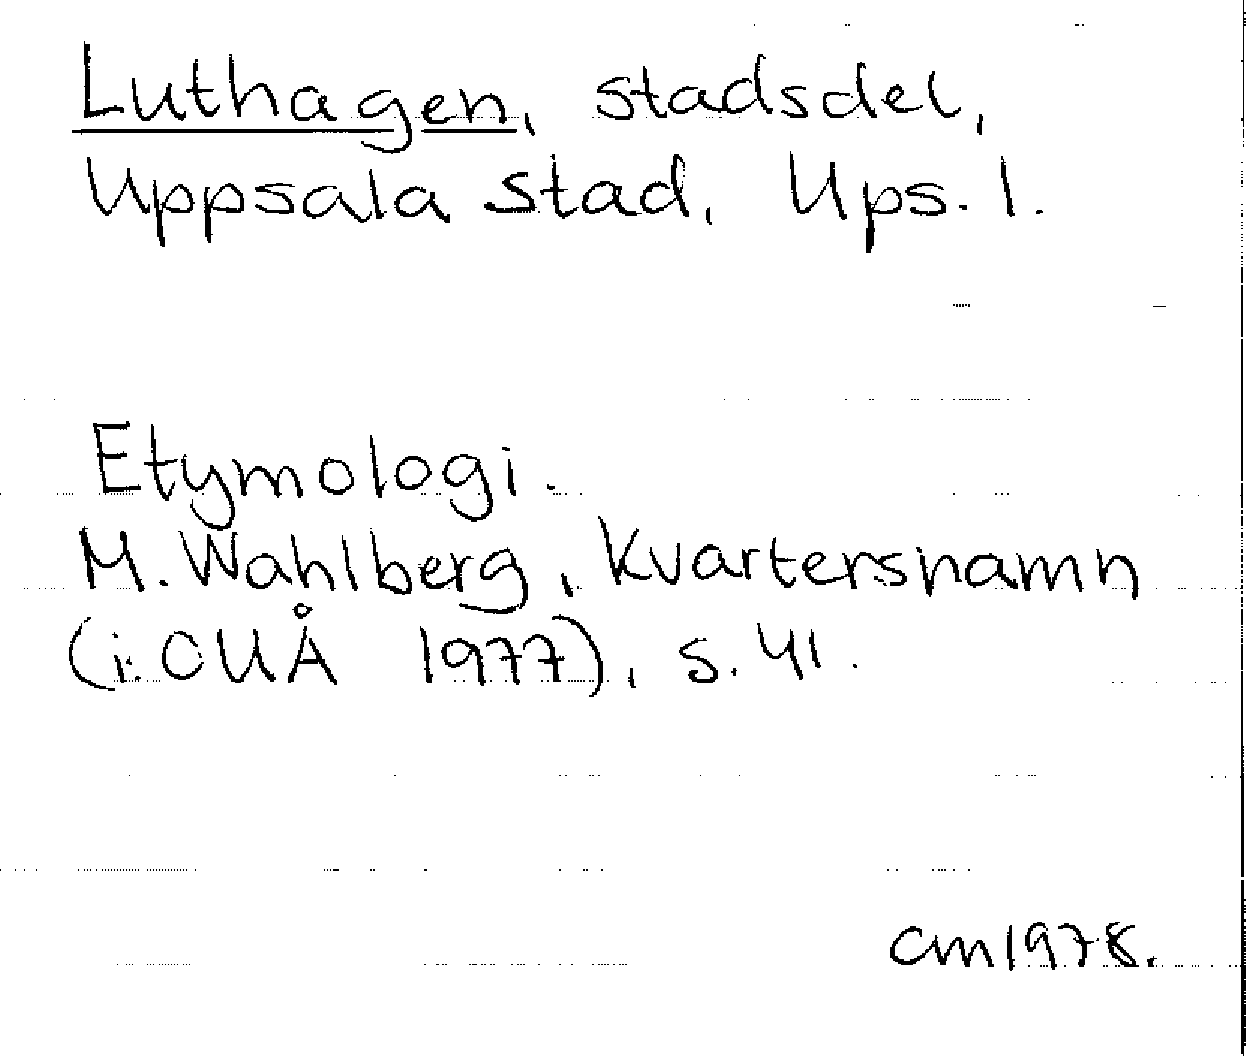 Luthagen, stadsdel,
Uppsala stad, Ups. l.
Etymologi.
M. Wahlberg, Kvartersnamn
(i: OUÅ 1977), s. 41.
CM 1978.